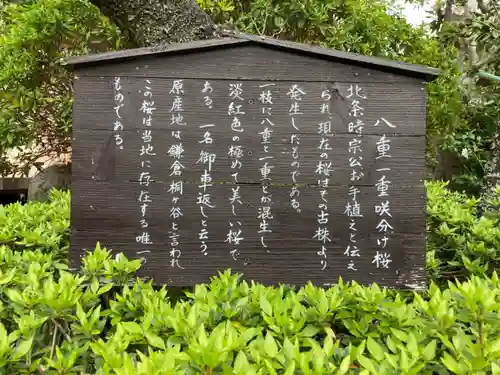 八重一重咲分け桜
北条時宗公お手植えと伝え
られ、現在の桜はその古株より
発生したものである。
一枝に八重と一重とが混生し
淡紅色の極めて美しい桜で
ある。一名御車返しと云う。
原産地は鎌倉桐ヶ谷と言われ
この桜は当地に存在する唯一の
ものである。